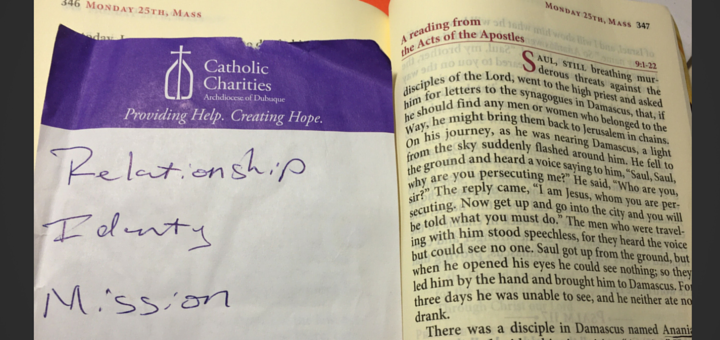 346 MONDAY 25TH, MASS
Catholic
Charities
Archdiocese of Dubuque
Providing Help. Creating Hope.
Relationship
Identity
Mission
MONDAY 25TH, MASS 347
A reading from
the Acts of the Apostles
9:1-22
SAUL, STILL breathing mur-
derous threats against the
disciples of the Lord, went to the high priest and asked
him for letters to the synagogues in Damascus, that, if
he should find any men or women who belonged to the
Way, he might bring them back to Jerusalem in chains.
On his journey, as he was nearing Damascus, a light
from the sky suddenly flashed around him. He fell to
the ground and heard a voice saying to him, “Saul, Saul,
why are you persecuting me?” He said, “Who are you,
sir?” The reply came, “I am Jesus, whom you are per-
secuting. Now get up and go into the city and you will
be told what you must do.” The men who were travel-
ing with him stood speechless, for they heard the voice
but could see no one. Saul got up from the ground, but
when he opened his eyes he could see nothing; so they
led him by the hand and brought him to Damascus. For
three days he was unable to see, and he neither ate no
drank.
There was a disciple in Damascus named Anani